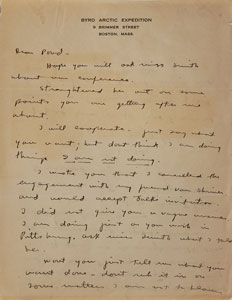 BYRD ARCTIC EXPEDITION
9 BRIMMER STREET
BOSTON, MASS
Dear Pond -
Hope you will ask miss Smith
about our conference.
Straightened me out on some
points you are getting after me
about.
I will cooperate - just say what
you want; but dont think I am doing
things I am not doing.
I wrote you that I cancelled the
engagement with my friend
and would accept
I did not give you a vague answer
I am doing just as you wish in
Pittsburg, ask miss Smith what I said
Wont you just tell me what you
want done - dont rub it in or